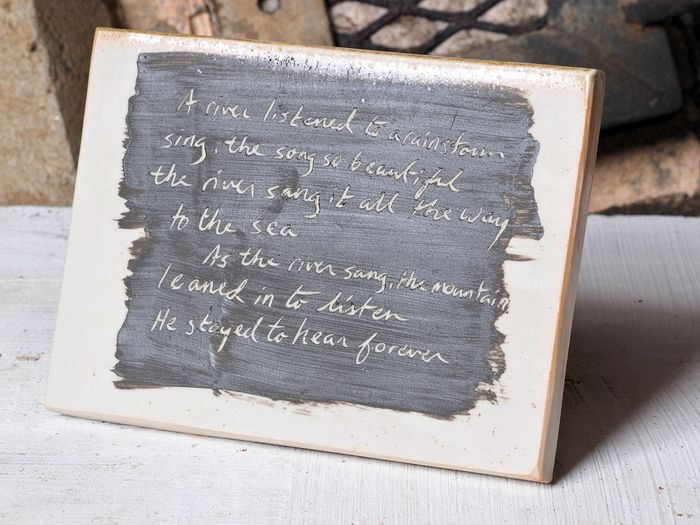 A river listened to a rainstorm
sing, the song so beautiful
the river sang it all the way
to the sea
As the river sang, the mountain
leaned in to listen
He stayed to hear forever